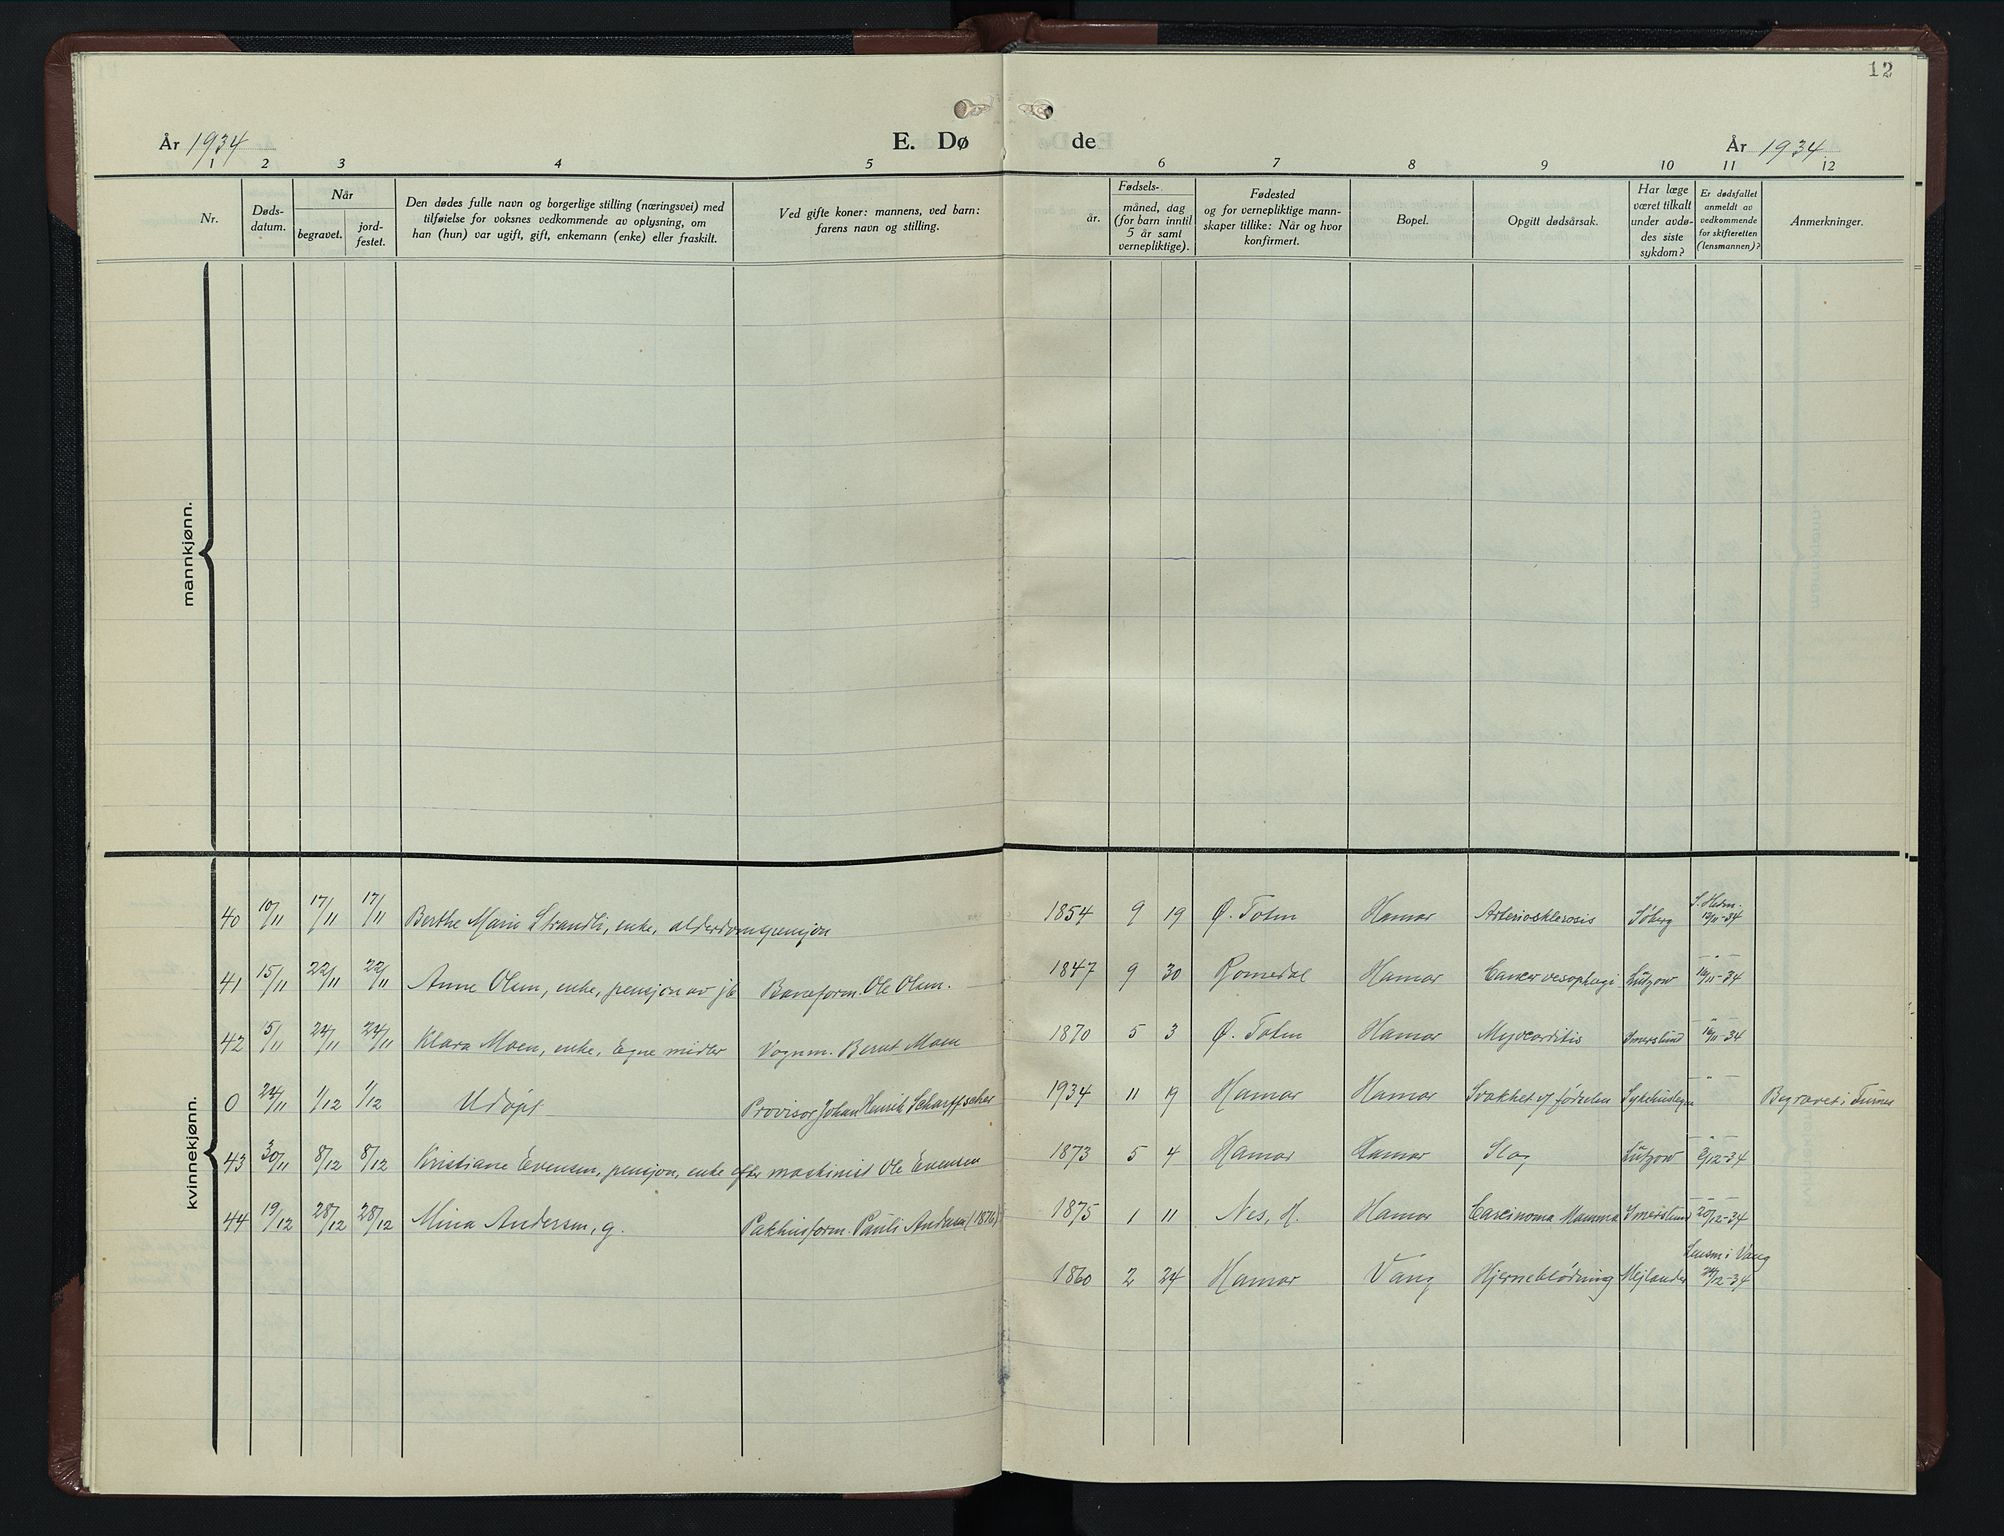 12
År 1934 E. Dø de År 1934
1 2 3 4 5 6 7 8 9 10 11 12
Nr.
Døds-
datum.
Når
begravet.
jord-
festet.
Den dødes fulle navn og borgerlige stilling (næringsvei) med
tilføielse for voksnes vedkommende av oplysning, om
han (hun) var ugift, gift, enkemann (enke) eller fraskilt.
Ved gifte koner: mannens, ved barn:
farens navn og stilling.
Fødsels-
år.
måned, dag
(for barn inntil
5 år samt
vernepliktige).
Fødested
og for vernepliktige mann-
skaper tillike: Når og hvor
konfirmert.
Bopel.
Opgitt dødsårsak.
Har læge
været tilkalt
under avdø-
des siste
sykdom?
Er dødsfallet
anmeldt av
vedkommende
for skifteretten
(lensmannen)?
Anmerkninger.
mannkjønn.
kvinnekjønn.
40 10/11 17/11 17/11 Berthe Marie Strandli, enke, alderdomspensjon 1854 9 19 Ø. Toten Hamar Arteriosklerosis Söberg S. Hedm. 12/11-34
41 15/11 22/11 22/11 Anne Olsen, enke, pensjon av jb Baneform. Ole Olsen. 1847 9 30 Romedal Hamar Cancer oesophagi Lützow -"- 16/11-34
42 15/11 24/11 24/11 Klara Moen, enke, Egne midler Vognm. Bernt Moen 1870 5 3 Ø. Toten Hamar Myocarditis Smerslund -"- 16/11-34
0 24/11 1/12 1/12 Udøpt Provisor Johan Henrik Scharffscher 1934 11 19 Hamar Hamar Svakhet af fødselen Sykehuslegen -"- Begravet i Furnes
43 30/11 8/12 8/12 Kristiane Evensen, pensjon, enke efter maskinist Ole Evensen 1873 5 4 Hamar Hamar Slag Lützow -"- 2/12-34
44 19/12 28/12 28/12 Mina Andersen, g. Pakhusform. Pauli Andersen (1876) 1875 1 11 Nes, H. Hamar Carcinoma Mamma Smerslund -"- 20/12-34
1860 2 24 Hamar Vang Hjerneblödning Mejlander Lensm i Vang 24/12-34